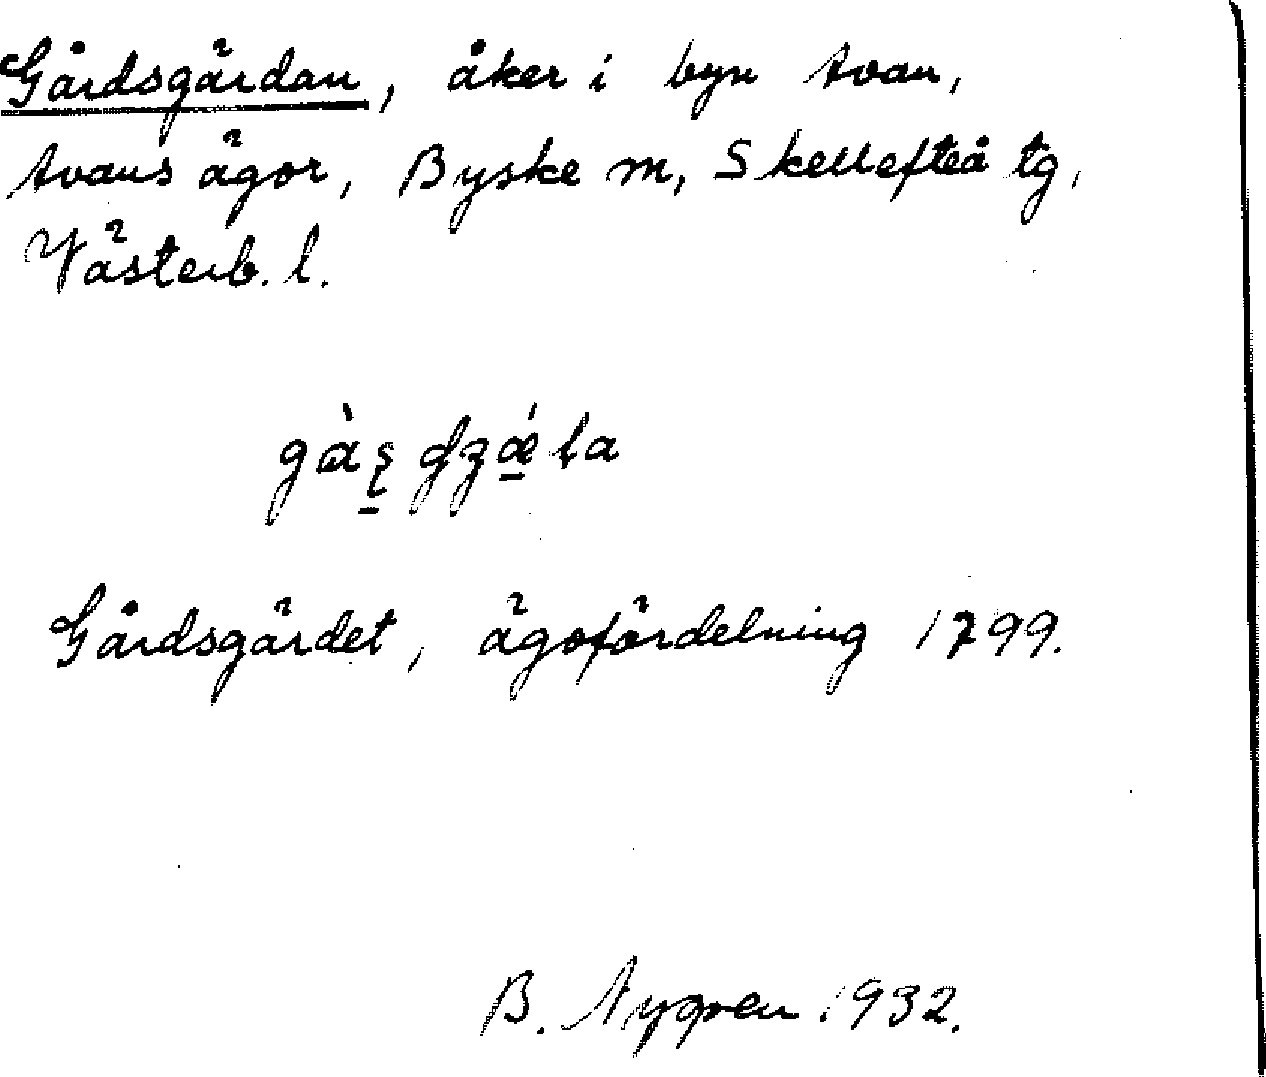 Gårdsgärdan, åker i byn Avan,
Avans ägor, Byske m, Skellefteå tg,
Västerb. l.
Gårdsgärdet, ägofördelning 1799.
B. Nygren 1932.